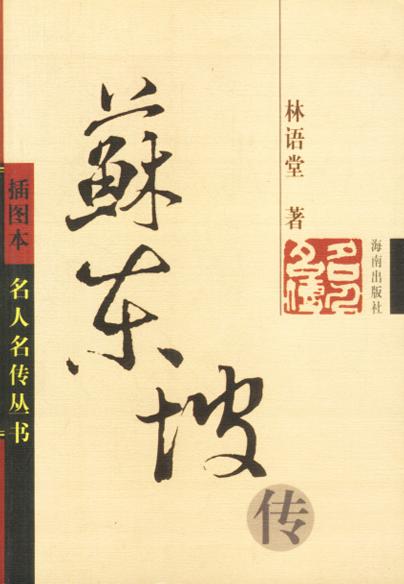 蘇东坡
传
林语堂 著
名人名傳
海南出版社
插图本
名人名传丛书